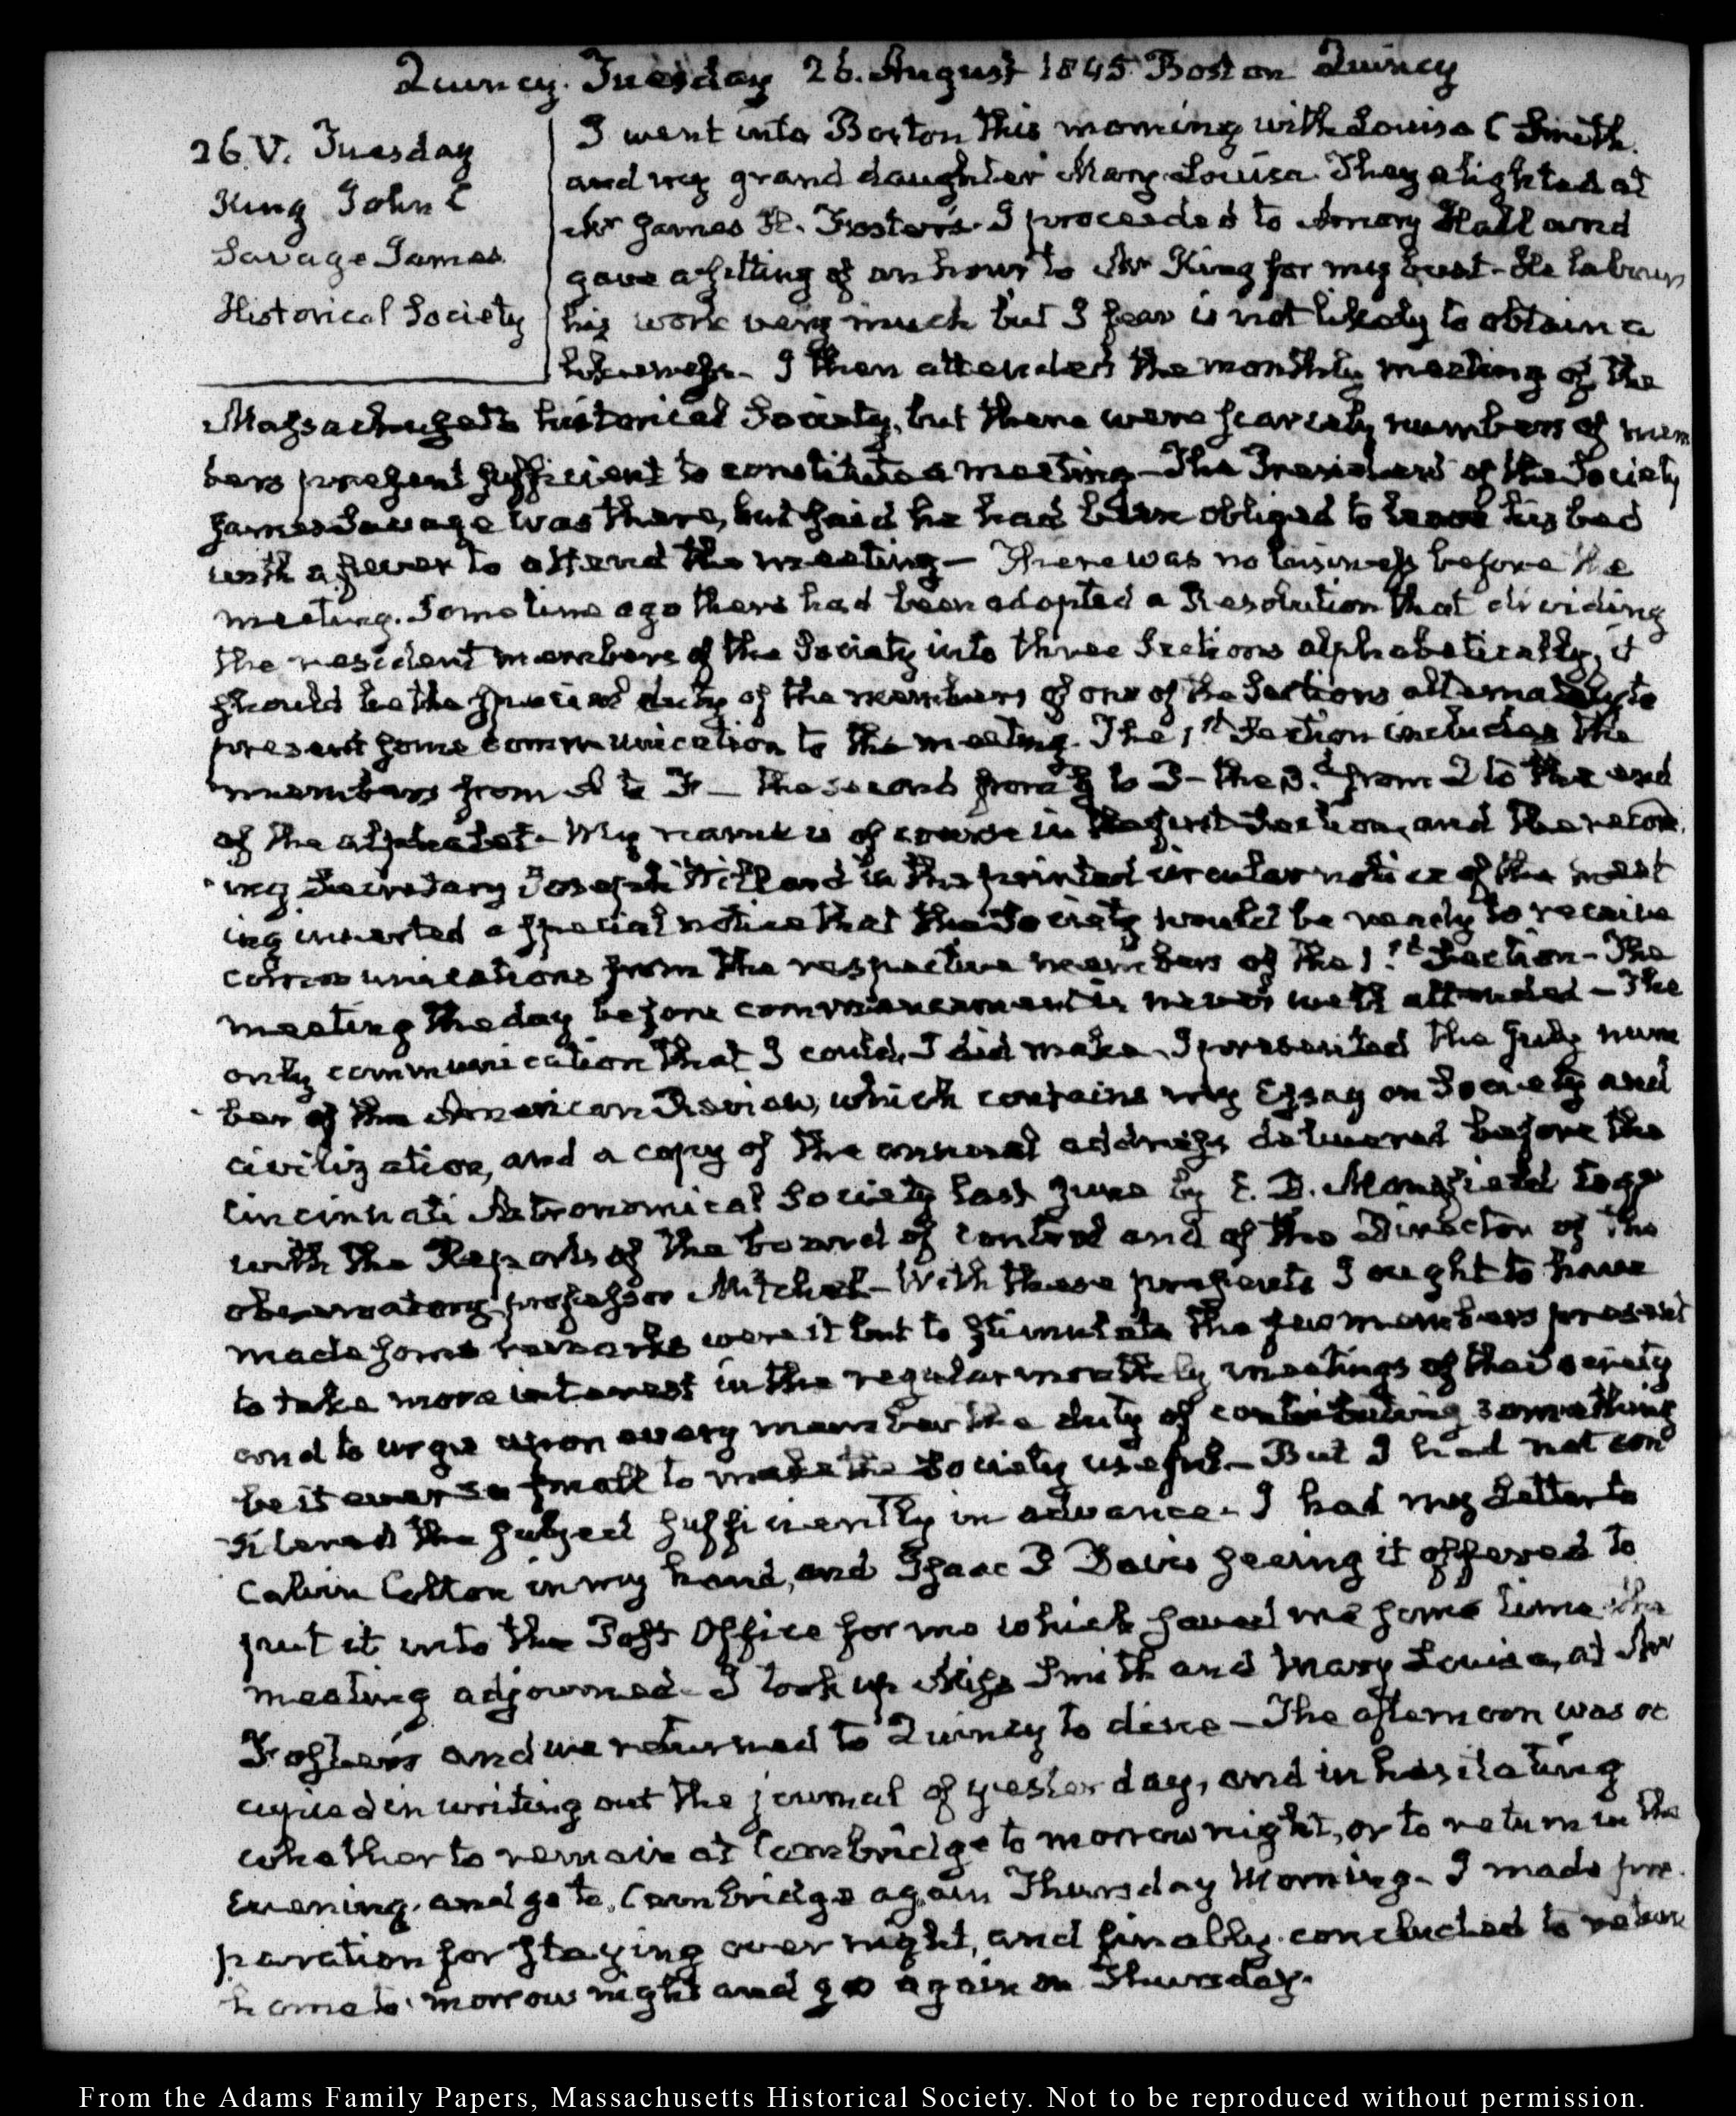 Quincy. Tuesday 26. August 1845. Boston Quincy
26 V. Tuesday
King John C
Savage James.
Historical Society
I went into Boston this morning with Louisa C Smith.
and my grand daughter Mary Louisa. They alighted at
Mr James H. Foster's. I proceeded to Amory Hall and
gave a sitting of an hour to Mr King for my bust. He labours
his work very much but I fear is not likely to obtain a
likeness. I then attended the monthly meeting of the
Massachusetts historical Society, but there were scarcely numbers of mem
bers present sufficient to constitute a meeting — The President of the Society
James Savage was there, but said he had been obliged to leave his bed
with a fever to attend the meeting — There was no business before the
meeting. Some time ago there had been adopted a Resolution that dividing
the resident members of the Society into three Sections alphabetically, it
should be the special duty of the members of one of the Sections alternately to
present some communication to the meeting. The 1st Section includes the
members from A to F — the second from G to P — the 3.d from Q to the end
of the alphabet. My name is of course in the first Section, and the record
ing Secretary Joseph Willard in the printed circular notice of the meet
ing inserted a special notice that the Society would be ready to receive
communications from the respective members of the 1.st Section — The
meeting the day before commencement is never well attended — The
only communication that I could, I did make. I presented the July num
ber of the American Review, which contains my Essay on Society and
civilization, and a copy of the annual address delivered before the
Cincinnati Astronomical Society last June by E. D. Mansfield Esqr
with the Reports of the board of control and of the Director of the
observatory professor Mitchel — With these presents I ought to have
made some remarks were it but to stimulate the few members present
to take more interest in the regular monthly meetings of the Society
and to urge upon every member the duty of contributing something
be it ever so small to make the Society useful — But I had not con
sidered the subject sufficiently in advance. I had my Letter to
Calvin Colton in my hand, and Isaac P Davis seeing it offered to
put it into the Post Office for me which saved me some time. The
meeting adjourned. I took up Miss Smith and Mary Louisa, at Mr
Foster's and we returned to Quincy to dine — The afternoon was oc
cupied in writing out the journal of yesterday, and in hesitating
whether to remain at Cambridge to morrow night, or to return in the
Evening, and go to Cambridge again Thursday Morning. I made pre
paration for staying over night, and finally concluded to return
home to morrow night and go again on Thursday.
From the Adams Family Papers, Massachusetts Historical Society. Not to be reproduced without permission.